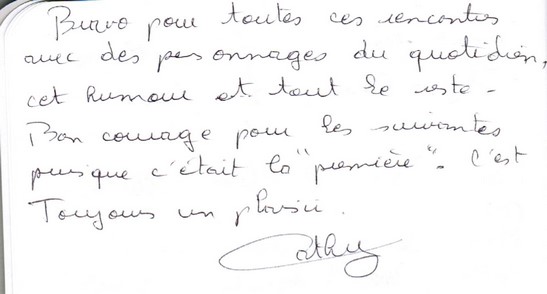 Bravo pour toutes ces rencontres
avec des personnages du quotidien,
cet humour et tout le reste -
Bon courage pour les suivantes
puisque c'était la "première". C'est
Toujours un plaisir.
Cathy